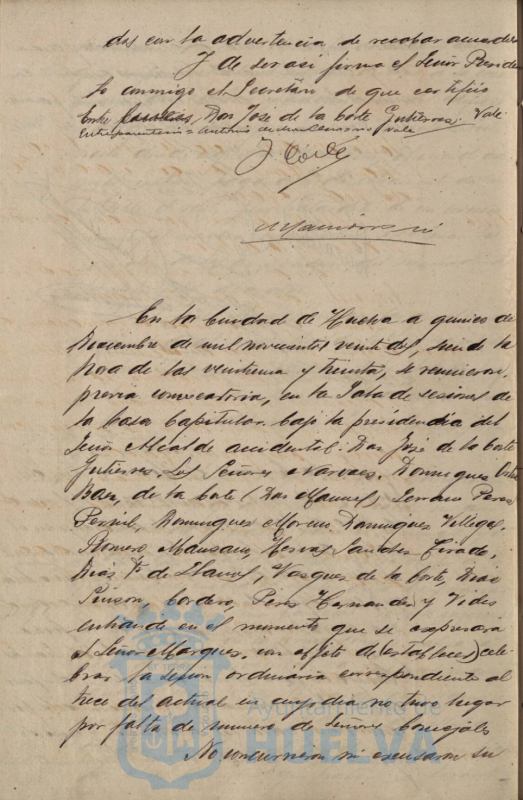 dos con la advertencia de recabar
Y de ser asi firma el Señor Presiden
te conmigo el Secretario de que certifico
Entre Don José de la Corte Gutierrez. Vale
Entreparentesis = Antonio de vale
J. Corte
En la Ciudad de Huelva a quince de
Diciembre de mil novecientos veintidos, siendo la
hora de las veintiuna y treinta, se reunieron,
previa convocatoria, en la Sala de sesiones de
la Casa Capitular bajo la presidencia del
Señor Alcalde accidental Don José de la Corte
Gutierrez, los Señores Narvaez, Dominguez
Baez, de la Corte (Don Manuel) Serrano Perez
Pernil, Dominguez Moreno, Dominguez Villegas,
Romero, Manzano, Hervas, Sanchez Tirado,
Diaz F. de Llanos, Vazquez de la Corte, Diaz
Pinzon, Cordero, Perez Hernandez y Vides
entrando en el momento que se expresará
el Señor Marquez, con objeto de (establecer) cele
brar la sesion ordinaria correspondiente al
trece del actual en cuyo dia no tuvo lugar
por falta de numero de Señores Concejales
No concurrieron ni excusaron su
Ayuntamiento de
HUELVA